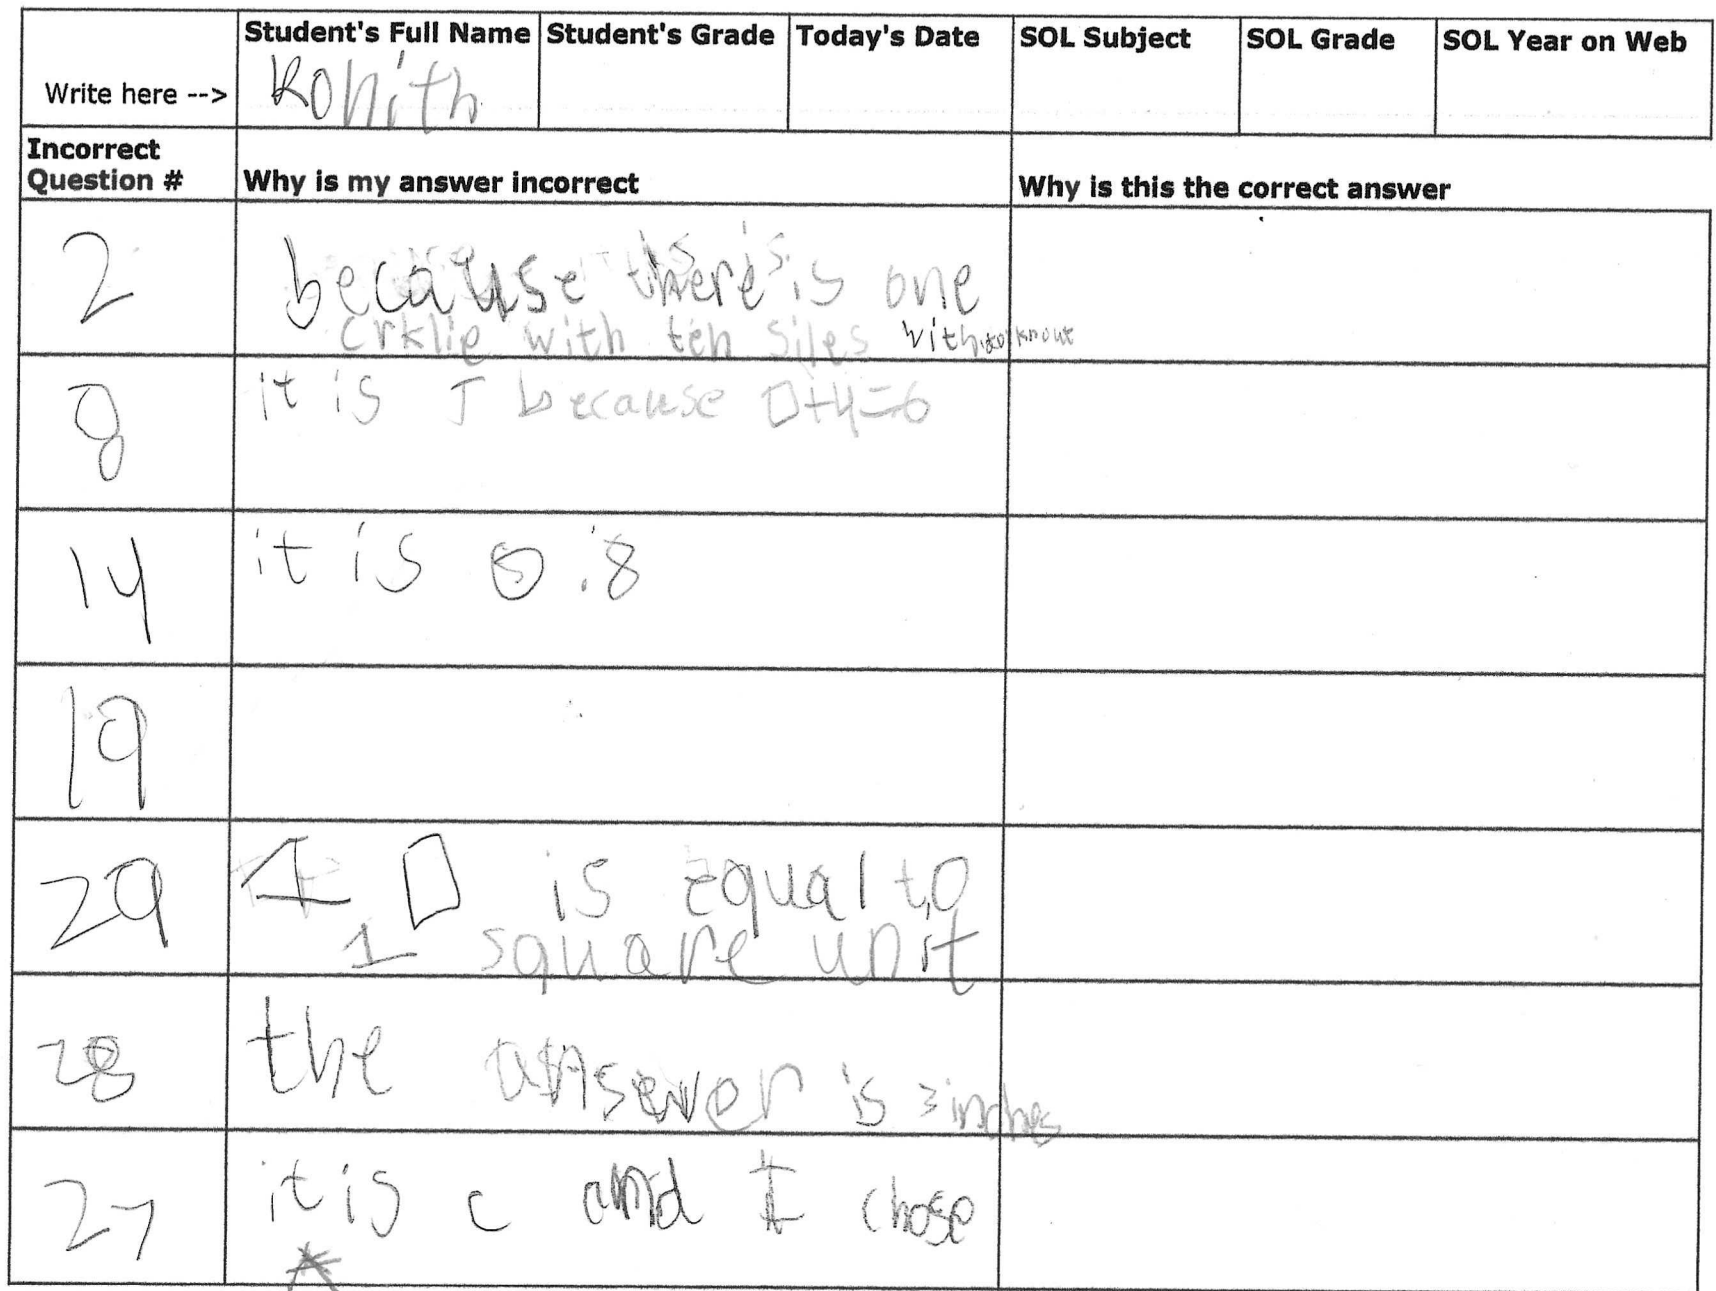 Student's Full Name Student's Grade Today's Date SOL Subject SOL Grade SOL Year on Web
Write here --> Ronith
Incorrect Question # Why is my answer incorrect Why is this the correct answer
2 because there is one
crklie with ten siles with
8 it is J because □+4=6
14 it is 0.8
19
29 1 □ is equal to
1 square unit
28 the ansewer is 3 inches
27 it is c and I chose
A